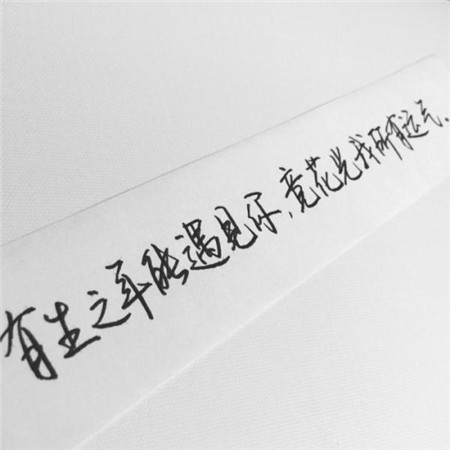 有生之年能遇见你，竟花光我所有运气。